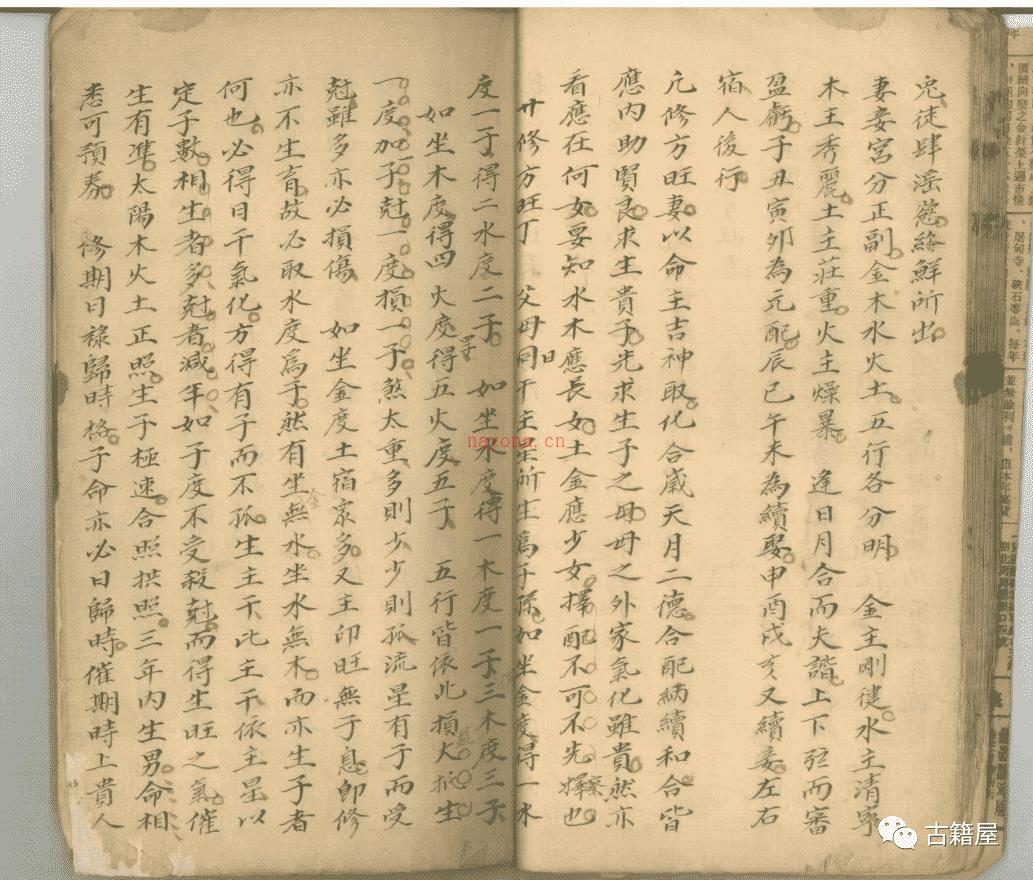 兇徒肆滛慾終鮮所出
妻妾宮分正副金木水火土五行各分明　金主剛健水主清寧
木主秀麗土主莊重火主燥暴　逢日月合而夫諧上下弦而審
盈虧子丑寅卯為元配辰巳午未為續娶申酉戌亥又續妾左右
宿人後行
凣修方旺妻以命主吉神取化合歲天月二德合配綉續和合皆
應內助賢良求生貴子先求生子之母母之外家氣化雖貴然亦
看應在何女要知水木應長女土金應少女擇配不可不先擇也
廿修方旺丁　父母同干主星所生為子孫如坐金度得一水
度一子得二水度二子　如坐水度得一木度一子三木度三子
如坐木度得四火度得五火度五子　五行皆依此損大生
一度加子尅一度損一子煞太重多則少少則孤流星有子而受
尅雖多亦必損傷　如坐金度土宿衆多又主印旺無子息卽修
亦不生育故必取水度爲子然有坐無水坐水無木而亦生子者
何也必得日干氣化方得有子而不孤生主干比主干依主星以
定子數相生者多尅者減年如子度不受殺尅而得生旺之氣催
生有凖太陽木火土正照生子極速合照拱照三年內生男命相
悉可預券　修期日祿歸時格子命亦必日歸時催期時上貴人
古籍屋
nayona.cn